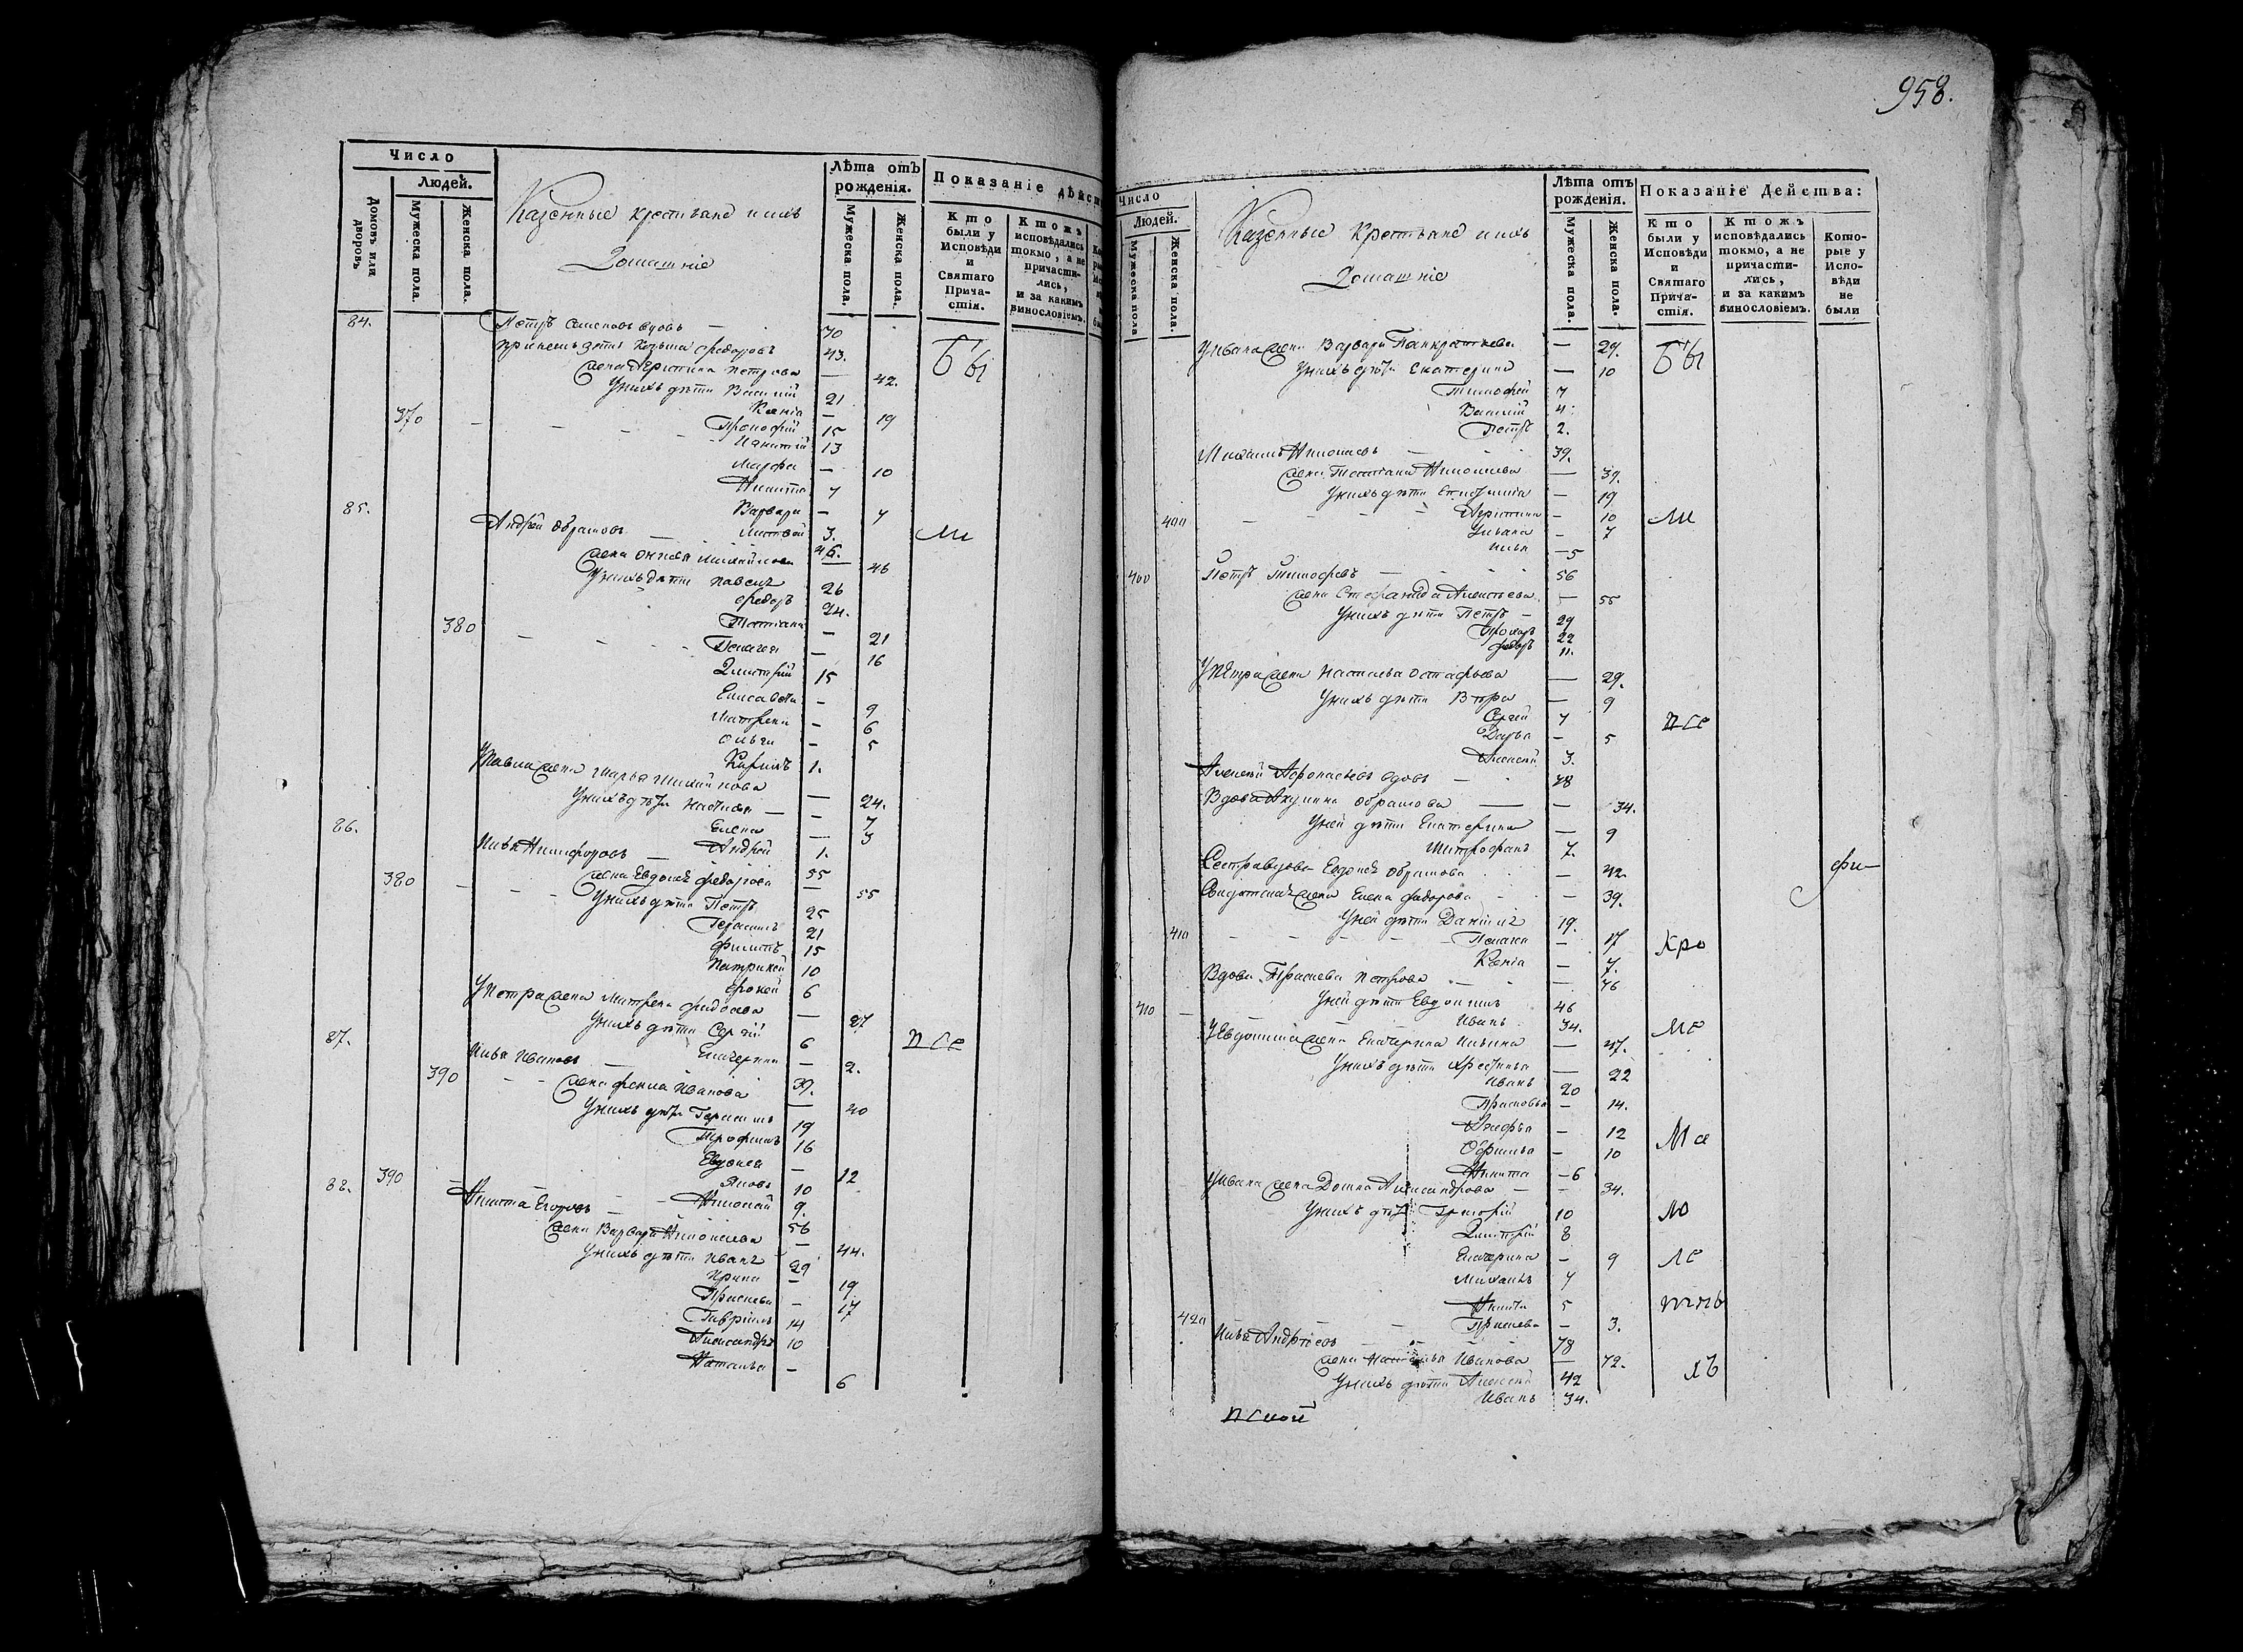 958.
Число
Людей.
Домовъ или дворовъ
Мужеска пола.
Женска пола.
Казенные крестьяне и ихъ
Домашніе
Лѣта отъ рожденія.
Мужеска пола.
Женска пола.
Показаніе дѣйст
Кто были у Исповѣди и Святаго Прича-стія.
Ктожъ исповѣдались токмо, а не причасти-лись, и за какимъ винословіемъ.
84.
Петръ Семеновъ вдовъ — 70
зять Козьма Федоровъ 43.
жена Петрова — 42.
У нихъ дѣти Василій 21
Ксенія — 19
370 Прокофій 15
Игнатій 13
Марфа — 10
Никита 7
Варвара — 7
Матвей 3.
Бы
85.
Андрей — 46.
жена Михайлова — 46
У нихъ дѣти Павелъ 26
Федоръ 24.
Татіана — 21
380 Пелагея — 16
Дмитрій 15
Елисавета — 9
Матрена — 6
Ольга — 5
Кирилъ 1.
У Павла жена Марья Михайлова — 24.
У нихъ дѣти — 7
Елена — 3
Андрей 1.
86.
Илья Никифоровъ — 55
380 жена Евдокія Федорова — 55
У нихъ дѣти Петръ 25
Герасимъ 21
Филипъ 15
Патрикей 10
6
У Петра жена Матрена — 27
У нихъ дѣти Сергій 6
Екатерина — 2.
87.
Илья Ивановъ — 39.
390 жена Ивановa — 40
У нихъ дѣти Герасимъ 19
Трофимъ 16
Евдокея — 12
Яковъ 10
390 Николай 9.
88.
Никита Егоровъ — 56
жена Варвара Николаева — 44.
У нихъ дѣти Иванъ 29
Ирина — 19
Прасковья — 17
Гаврилъ 14
Александръ 10
Наталья — 6
Число
Людей.
Мужеска пола
Женска пола.
Казенные крестьяне и ихъ
Домашніе
Лѣта отъ рожденія.
Мужеска пола.
Женска пола.
Показаніе Действа:
Кто были у Исповѣди и Святаго Прича-стія.
Ктожъ исповѣдались токмо, а не причасти-лись, и за какимъ винословіемъ.
Кото-рые у Испо-вѣди не были
У Ивана жена Варвара Панкратьева — 29.
Бы
У нихъ дѣти Екатерина — 10
Тимофей 7
Василій 4.
Петръ 2.
Михаилъ Николаевъ — 39.
жена Татіана Николаева — 39.
У нихъ дѣти — 19
400 — 10
Ульянія — 7
Илья — 5
400 Петръ Тимофеевъ — 56
жена Стефанида Алексеева — 55
У нихъ дѣти Петръ — 29
Прохоръ 22
Федоръ 11.
У Петра жена Наталья Остафьева — 29.
У нихъ дѣти Вѣра — 9
Сергей 7
Дарья — 5
Алексей 3.
Алексей Афонасьевъ вдовъ — 48
Вдова Акулина — 34.
У ней дѣти Екатерина — 9
Митрофанъ 7.
Сестра вдова Евдокія — 42.
жена Елена Федорова — 39.
У ней дѣти Данилъ 19.
410 Пелагея — 17
Ксенія — 7.
Вдова Прасковья Петрова — 76
410 У ней дѣти Евдокимъ 46
Иванъ 34.
У Евдокима жена Екатерина Ильина — 47.
У нихъ дѣти — 22
Иванъ 20
Прасковья — 14.
— 12
— 10
Никита — 6
У Ивана жена Домна Александрова — 34.
У нихъ дѣти Григорій 10
Дмитрій 8
Екатерина — 9
Михаилъ 7
Никита 5
420 Прасковья — 3.
Илья Андреевъ 78
жена Наталья Иванова — 72.
У нихъ дѣти Алексей 42
Иванъ 34.